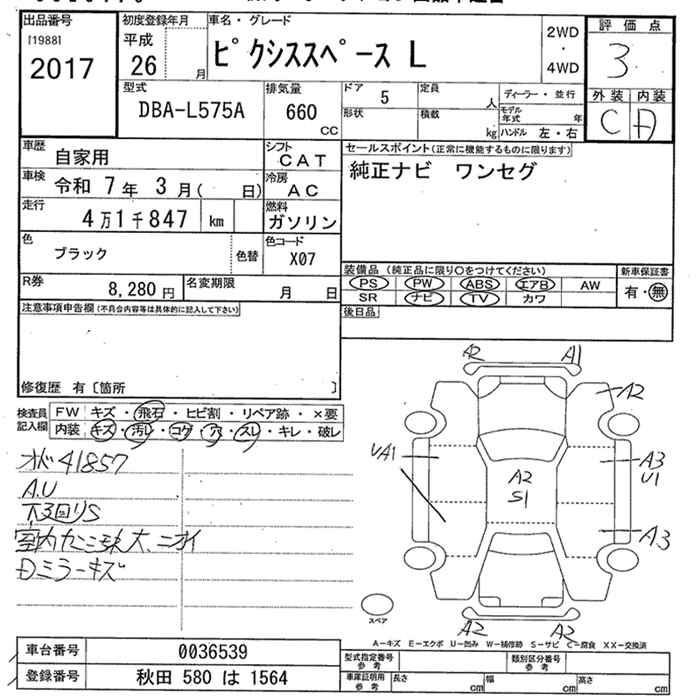 出品番号
[1988]
2017
初度登録年月
平成
26
月
車名・グレード
ピクシススペース L
2WD
・
4WD
評価点
3
外装
内装
C
D
型式
DBA-L575A
排気量
660
CC
ドア
5
形状
定員
人
積載
kg
ディーラー・並行
モデル年式
年
ハンドル 左・右
車歴
自家用
シフト
CAT
車検
令和 7年 3月( 日)
冷房
AC
走行
4万1千847
km
燃料
ガソリン
色
ブラック
色替
色コード
X07
R券
8,280円
名変期限
月 日
セールスポイント(正常に機能するものに限ります)
純正ナビ ワンセグ
装備品 (純正品に限り○をつけてください)
PS
PW
ABS
エアB
AW
SR
ナビ
TV
カワ
新車保証書
有・無
後日品
注意事項申告欄(不具合内容等は具体的に記入して下さい)
修復歴 有〔箇所 〕
検査員記入欄
FW
キズ・飛石・ヒビ割・リペア跡・×要
内装
キズ・汚レ・コゲ・穴・スレ・キレ・破レ
オドメーター 41857
A.U
下回りS
Dミラーキズ
A2
A1
A2
UA1
A3
U1
A2
S1
A3
A2
A2
スペア
A-キズ E-エクボ U-凹み W-補修跡 S-サビ C-腐食 XX-交換済
車台番号
0036539
登録番号
秋田 580 は 1564
型式指定番号
参考
類別区分番号
参考
車庫証明用
参考
長さ
cm
幅
cm
高さ
cm